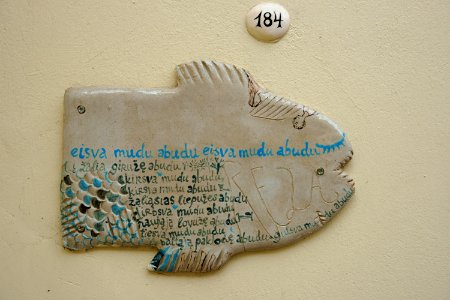 184
eisva mudu abudu eisva mudu abudu
į žalią giružę abudu
kirsva mudu abudu
kirsva mudu abudu
žaliąsias liepužes abudu
dirbsva mudu abudu
naują lovužę abudu
tiesva mudu abudu
baltąjį pat abudu gulsva mudu abudu